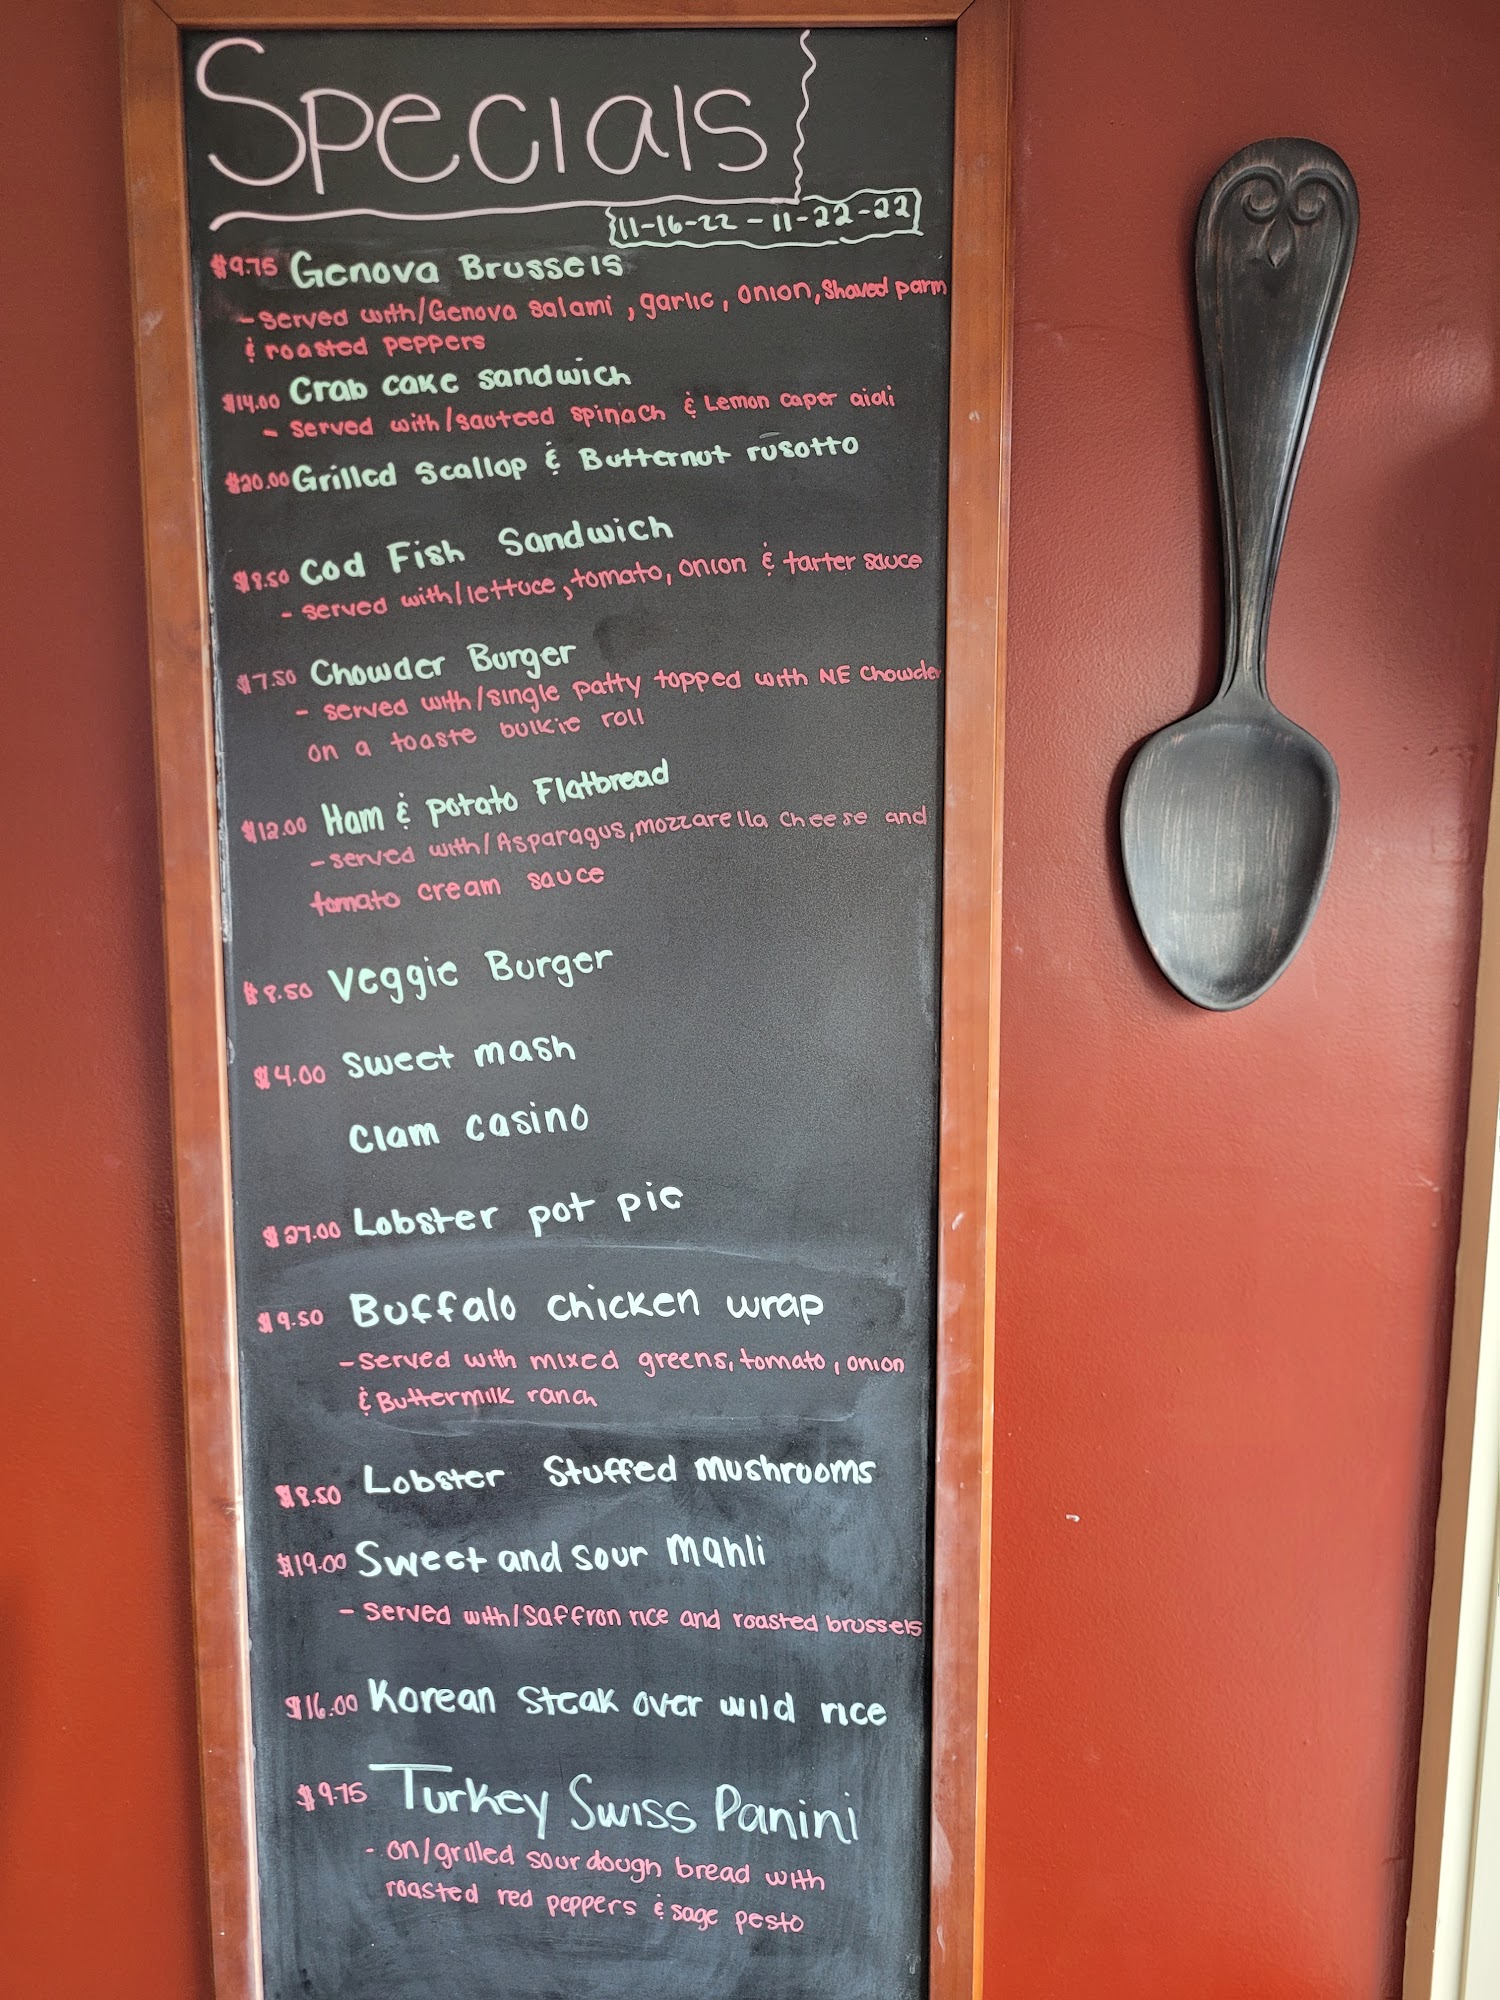 Specials
11-16-22 - 11-22-22
$9.75 Genova Brussels
- served with/Genova salami, garlic, onion, shaved parm
& roasted peppers
$14.00 Crab cake sandwich
- served with/sauteed spinach & Lemon caper aioli
$20.00 Grilled scallop & Butternut rusotto
$8.50 Cod Fish Sandwich
- served with/lettuce, tomato, onion & tarter sauce
$7.50 Chowder Burger
- served with/single patty topped with NE chowder
on a toaste bulkie roll
$12.00 Ham & potato Flatbread
- served with/Asparagus, mozzarella cheese and
tomato cream sauce
$8.50 Veggie Burger
$4.00 sweet mash
Clam casino
$27.00 Lobster pot pie
$9.50 Buffalo chicken wrap
- served with mixed greens, tomato, onion
& Buttermilk ranch
$8.50 Lobster Stuffed mushrooms
$19.00 Sweet and sour Mahli
- served with/saffron rice and roasted brussels
$16.00 Korean steak over wild rice
$9.75 Turkey Swiss Panini
- on/grilled sour dough bread with
roasted red peppers & sage pesto